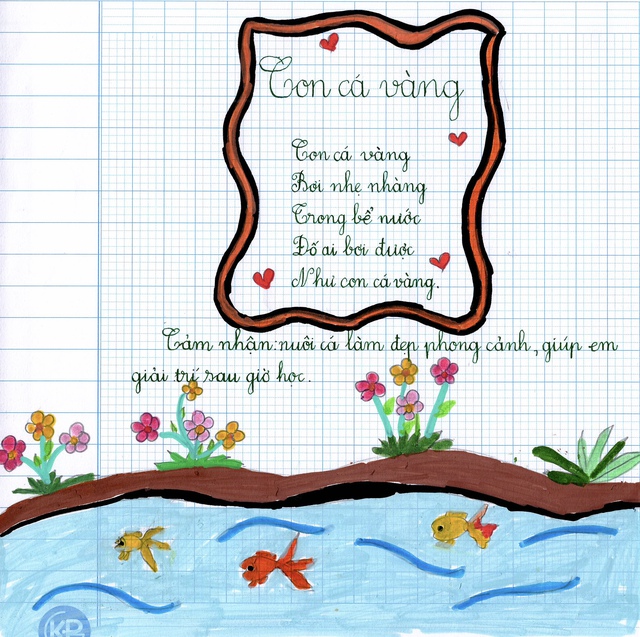 Con cá vàng
Con cá vàng
Bơi nhẹ nhàng
Trong bể nước
Đố ai bơi được
Như con cá vàng.
Cảm nhận: nuôi cá làm đẹp phong cảnh, giúp em
giải trí sau giờ học.
KP